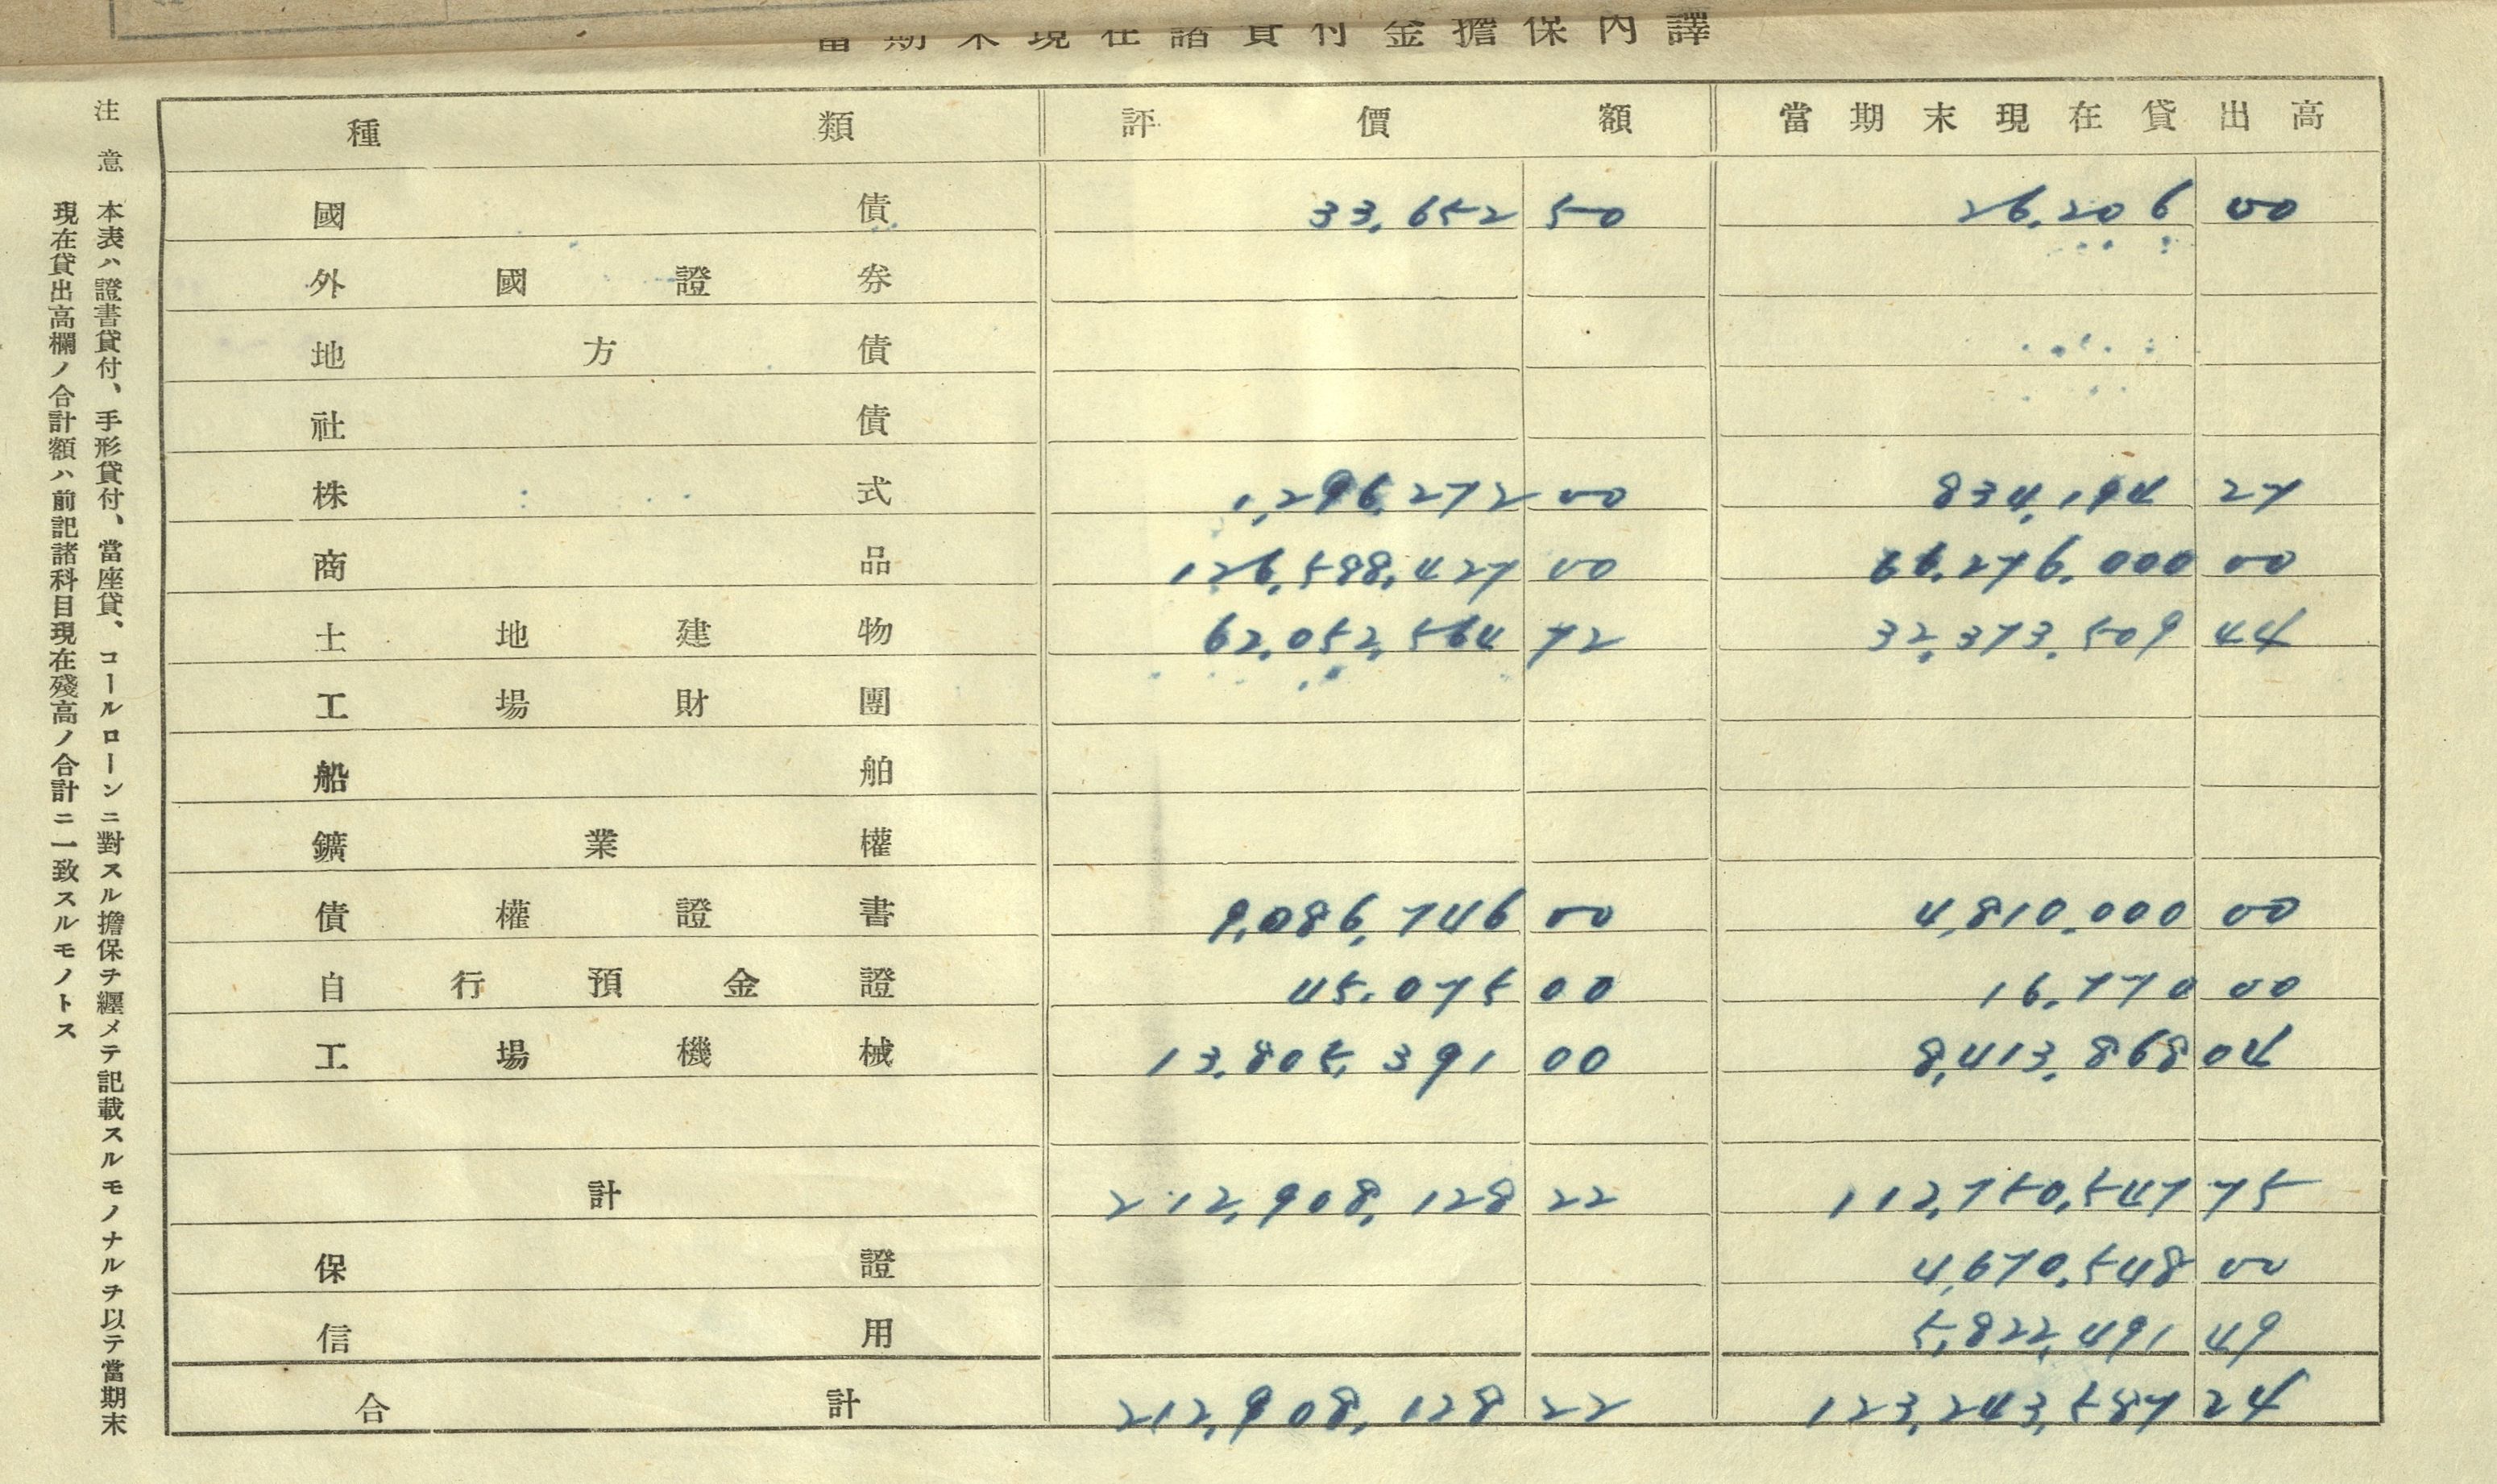 當期末現在諸貸付金擔保內譯
種類 評價額 當期末現在貸出高
國債 33,652 50 26,206 00
外國證券
地方債
社債
株式 1,296,272 00 834,194 27
商品 126,588,427 00 66,276,000 00
土地建物 62,052,564 72 32,373,509 44
工場財團
船舶
鑛業權
債權證書 9,086,746 00 4,810,000 00
自行預金證 45,075 00 16,770 00
工場機械 13,805,391 00 8,413,868 04
計 212,908,128 22 112,750,547 75
保證 4,670,548 00
信用 5,822,491 49
合計 212,908,128 22 123,243,587 24
注意 本表ハ證書貸付、手形貸付、當座貸、コールローンニ對スル擔保ヲ纒メテ記載スルモノナルヲ以テ當期末
現在貸出高欄ノ合計額ハ前記諸科目現在殘高ノ合計ニ一致スルモノトス